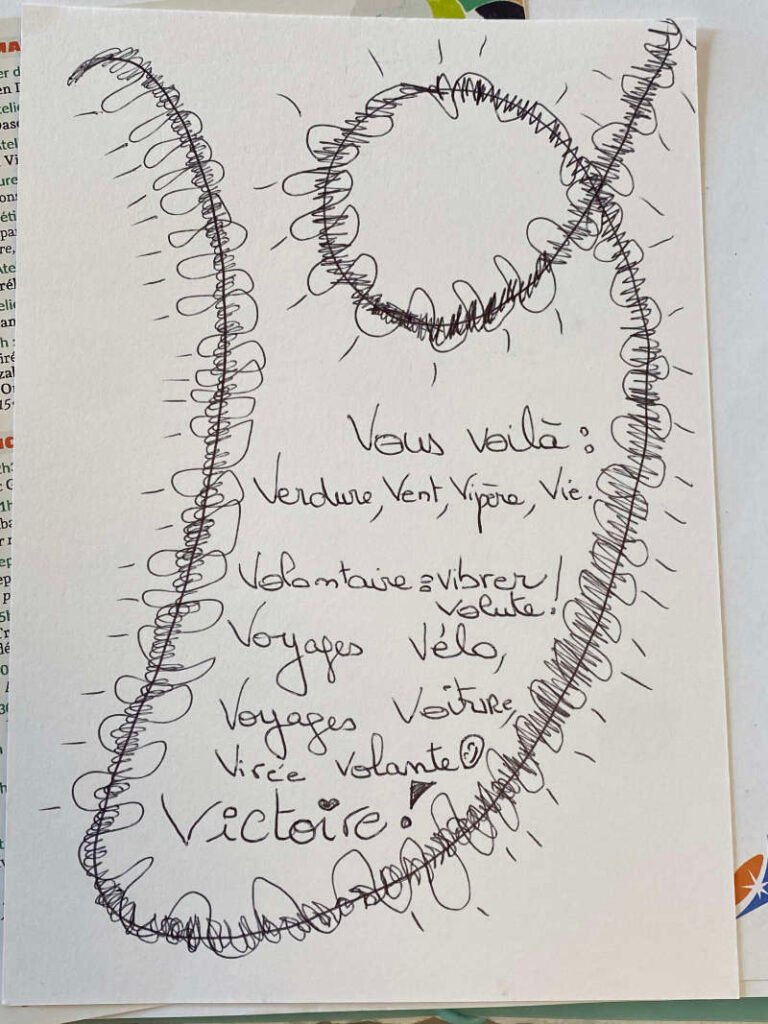 Vous voilà :
Verdure, Vent, Vipère, Vie.
Volontaire : vibrer !
volute !
Voyages Vélo,
Voyages Voiture,
Virée volante
Victoire !